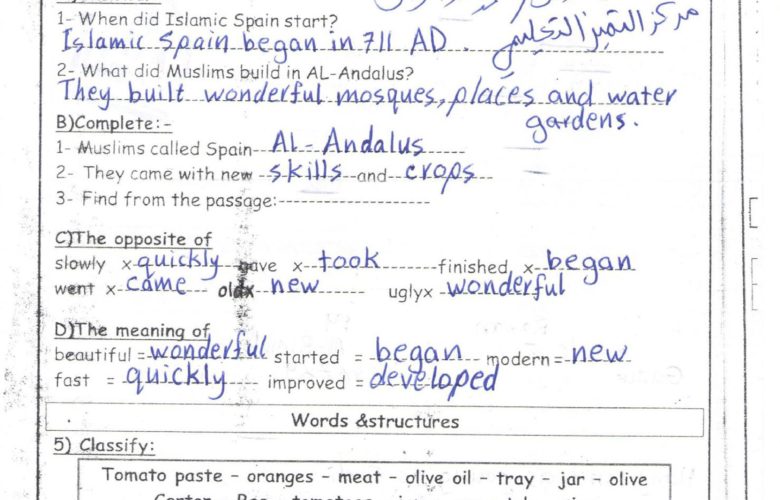 1- When did Islamic Spain start?
Islamic Spain began in 711 AD. مركز التميز التعليمي
2- What did Muslims build in AL-Andalus?
They built wonderful mosques, places and water
gardens.
B)Complete:-
1- Muslims called Spain AL-Andalus
2- They came with new skills and crops
3- Find from the passage:--------------------
C)The opposite of
slowly x quickly gave x took finished x began
went x came old x new uglyx wonderful
D)The meaning of
beautiful = wonderful started = began modern = new
fast = quickly improved = developed
Words &structures
5) Classify:
Tomato paste - oranges - meat - olive oil - tray - jar - olive